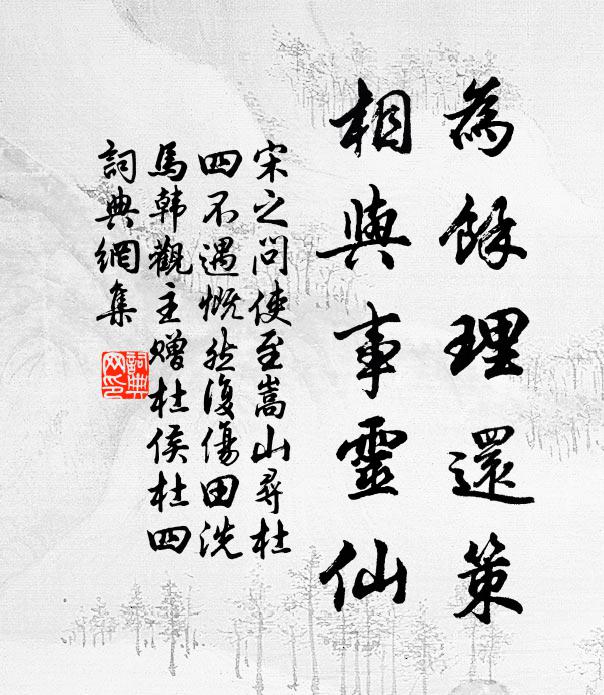 為餘理還策
相與事靈仙
宋之問使至嵩山尋杜
四不遇慨然復傷田洗
馬韓觀主贈杜侯杜四
詞典網集
詞典网印